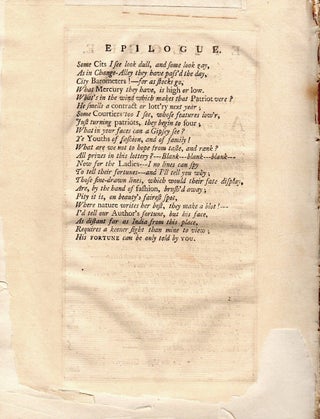 EPILOGUE.
Some Cits I see look dull, and some look gay,
As in Change-Alley they have pass'd the day,
City Barometers !---for as stocks go,
What Mercury they have, is high or low.
What's in the wind which makes that Patriot veer?
He smells a contract or lott'ry next year;
Some Courtiers too I see, whose features low'r,
Just turning patriots, they begin to sour;
What in your faces can a Gipsey see?
Ye Youths of fashion, and of family!
What are we not to hope from taste, and rank?
All prizes in this lottery?---Blank---blank---blank---
Now for the Ladies---I no lines can spy
To tell their fortunes---and I'll tell you why;
Those fine-drawn lines, which would their fate display,
Are, by the hand of fashion, brush'd away;
Pity it is, on beauty's fairest spot,
Where nature writes her best, they make a blot!---
I'd tell our Author's fortune, but his face,
As distant far as India from this place,
Requires a keener sight than mine to view;
His FORTUNE can be only told by YOU.